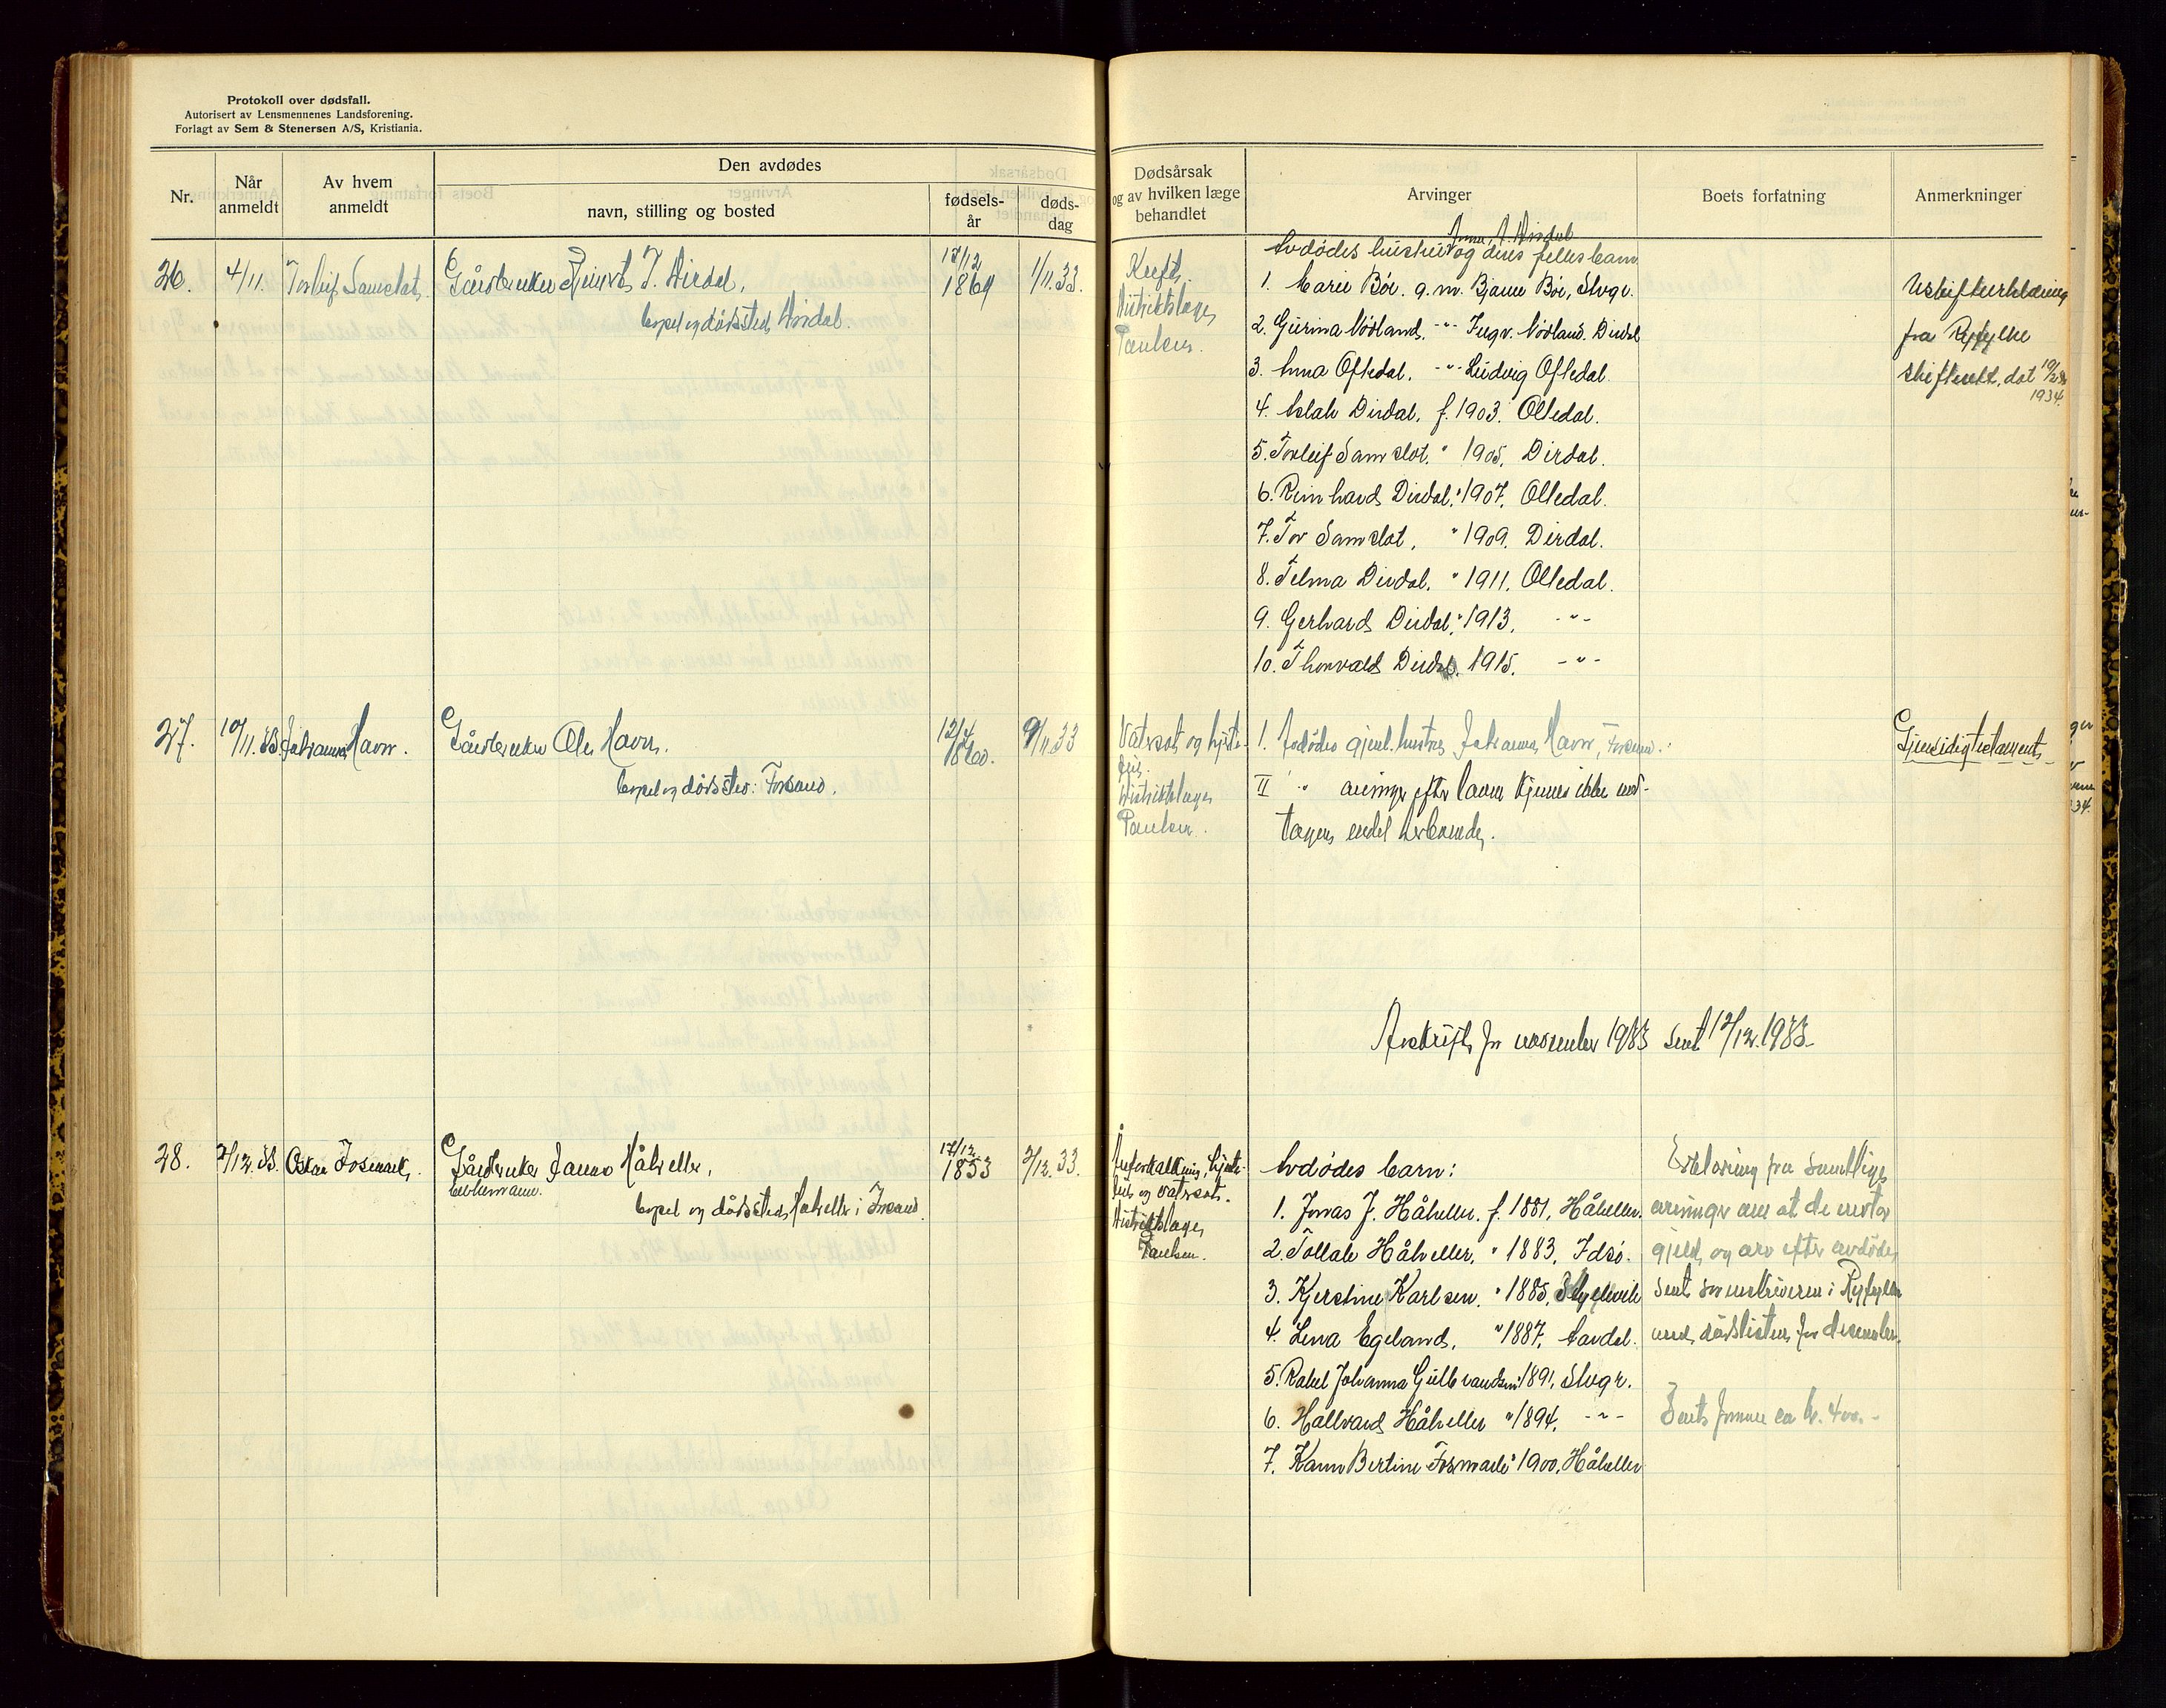 Protokoll over dødsfall.
Autorisert av Lensmennenes Landsforening.
Forlagt av Sem & Stenersen A/S, Kristiania.
Nr.
Når anmeldt
Av hvem anmeldt
Den avdødes
navn, stilling og bosted
fødsels-år
døds-dag
Dødsårsak og av hvilken læge behandlet
Arvinger
Boets forfatning
Anmerkninger
26. 4/11. Torleif Samslot. Gårdbruker T. Dirdal, 17/12 1864 1/11.33.
bopel og dødssted Dirdal.
Kreft.
Distriktslæge
Paulsen.
Anna A. Dirdal
Avdødes hustru og deres fellesbarn
1. Marie Bøe. g.m. Bjarne Bøe, Stvgr.
2. Gurina Nødland. -"- Ingv. Nødland. Dirdal
3. Anna Oftedal. -"- Ludvig Oftedal.
4. Aslak Dirdal, f. 1903. Oltedal.
5. Torleif Samslot. " 1905. Dirdal.
6. Reinhard Dirdal. " 1907. Oltedal.
7. Tor Samslot, " 1909. Dirdal.
8. Telma Dirdal. " 1911. Oltedal.
9. Gerhard Dirdal. " 1913. -"-
10. Thorvald Dirdal. 1915. -"-
fra Ryfylke
skifterett, dat
1934.
27. 10/11.33 Johanna Havn. Gårdbruker Ole Havn. 12/4 1860. 9/11.33
bopel og dødssted: Forsand.
Vatersot og hjerte-
feil.
Distriktslæge
Paulsen.
1. Avdødes gjenl. hustru Johanna Havn, Forsand.
II " arvinger efter loven kjennes ikke
Gjensidig testament
Avskrift for november 1933 sent 12/12.1933.
28. 2/12.33. Oskar Fosmark. Gårdbruker Håheller, 17/12 1853 2/12.33.
enkemann.
bopel og dødssted Håheller i Forsand
Åreforkalkning, hjerte-
feil og vatersot.
Distriktslæge
Paulsen.
Avdødes barn:
1. Jonas J. Håheller. f. 1881, Håheller.
2. Tollak Håheller. " 1883, Idsø.
3. Kjerstine Karlsen. " 1885,
4. Lena Egeland. " 1887,
5. Rakel Johanna Gulbrandsen " 1891, Stvgr.
6. Hallvard Håheller " 1894. -"-
7. Karen Bertine Fosmark " 1900, Håheller
Erklæring fra samtlige
arvinger om at de
gjeld og arv efter avdøde
sent sorenskriveren i Ryfylke
med dødslisten for desember.
formue ca kr. 400.-